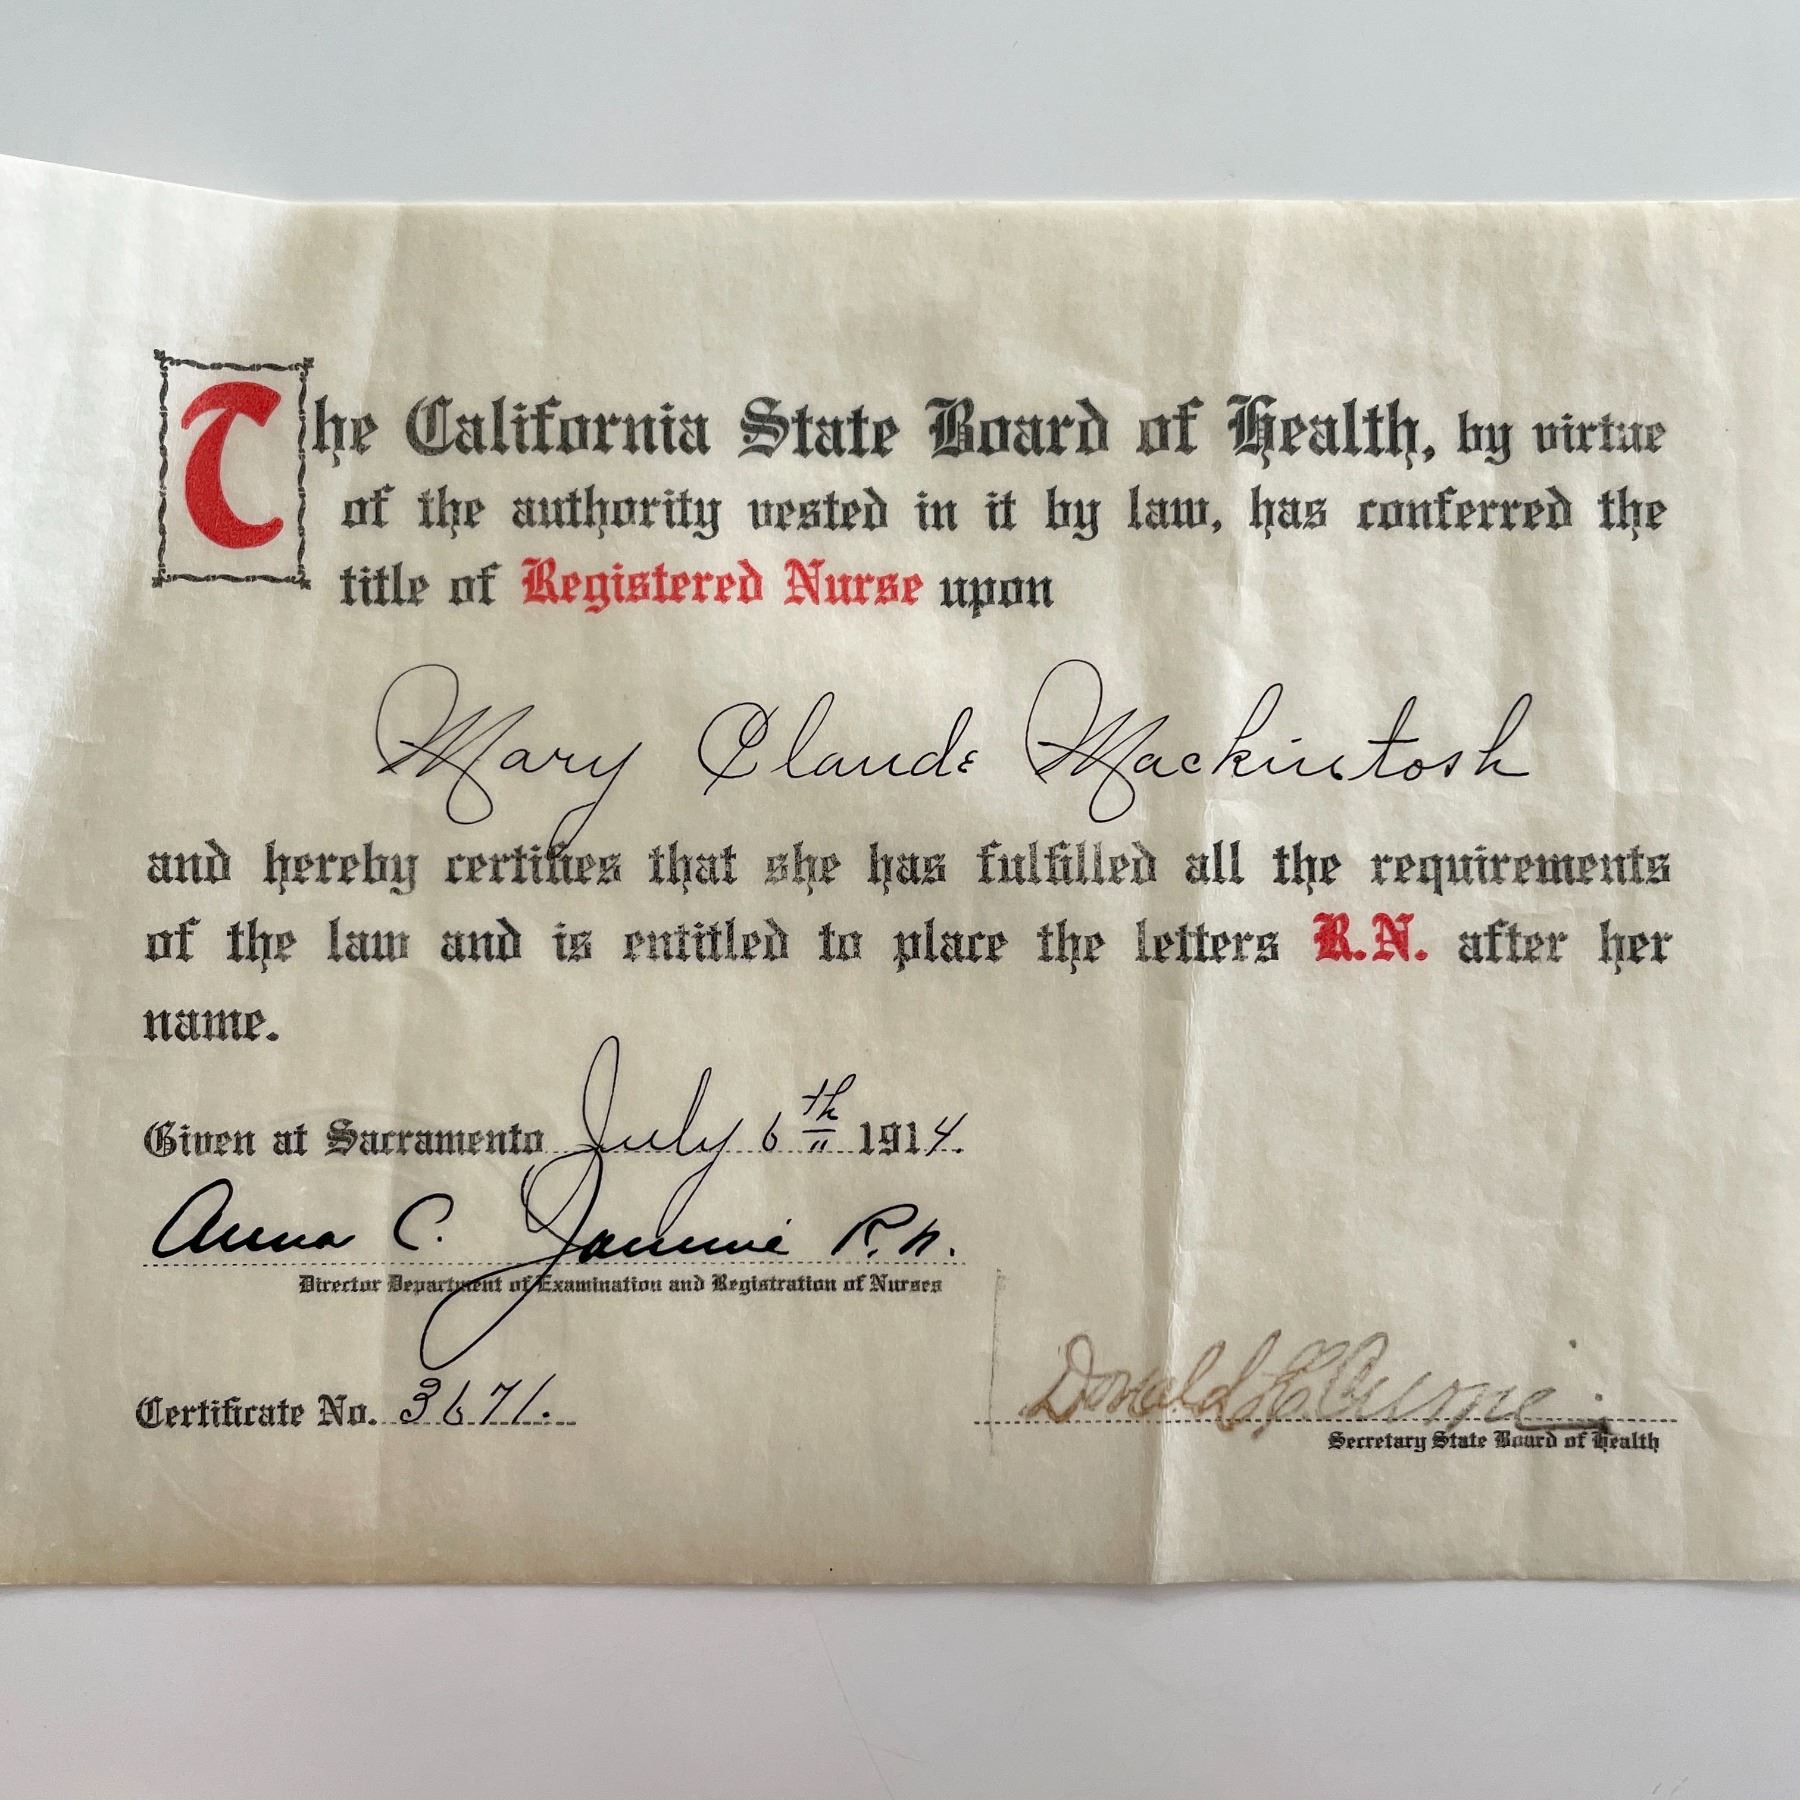 The California State Board of Health, by virtue
of the authority vested in it by law, has conferred the
title of Registered Nurse upon
Mary Claude Mackintosh
and hereby certifies that she has fulfilled all the requirements
of the law and is entitled to place the letters R.N. after her
name.
Given at Sacramento July 6th 1914.
Anna C. Jammé R.N.
Director Department of Examination and Registration of Nurses
Certificate No. 3671.
Donald H. Currie
Secretary State Board of Health